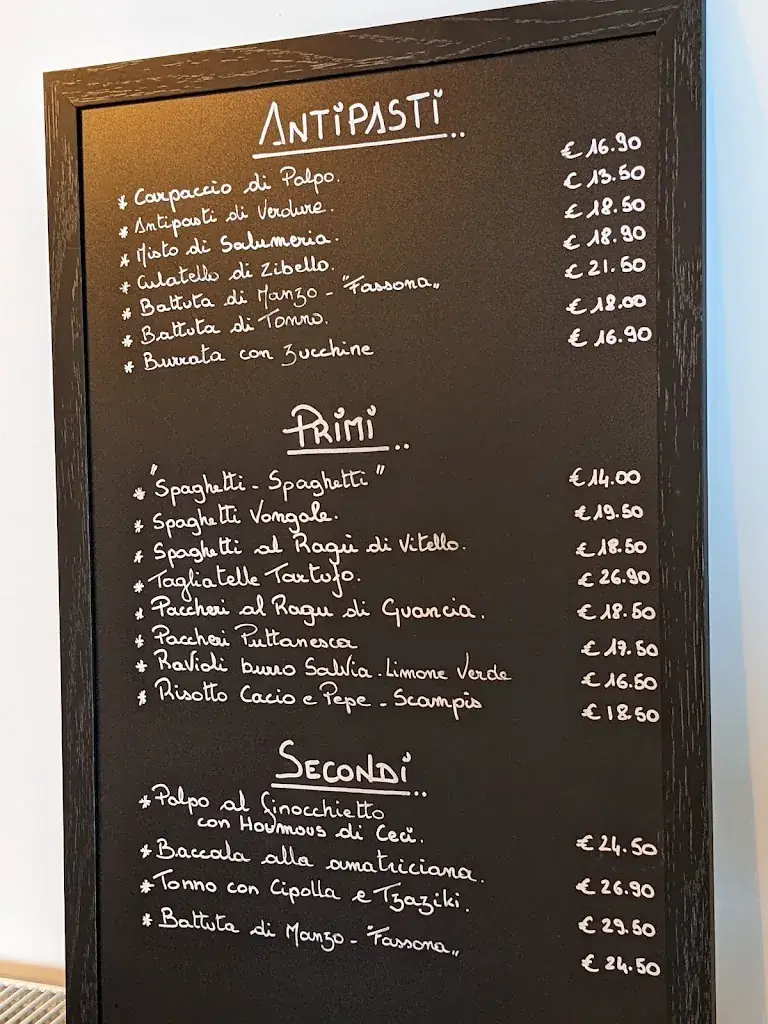 ANTIPASTI..
* Carpaccio di Polpo. € 16.90
* Antipasti di Verdure. € 13.50
* Misto di Salumeria. € 18.50
* Culatello di Zibello. € 18.90
* Battuta di Manzo - "Fassona„ € 21.50
* Battuta di Tonno. € 18.00
* Burrata con Zucchine € 16.90
PRIMI..
* "Spaghetti - Spaghetti" € 14.00
* Spaghetti Vongole. € 19.50
* Spaghetti al Ragù di Vitello. € 18.50
* Tagliatelle Tartufo. € 26.90
* Paccheri al Ragu di Guancia. € 18.50
* Paccheri Puttanesca € 17.50
* Ravioli burro Salvia - Limone Verde € 16.50
* Risotto Cacio e Pepe - Scampis € 18.50
SECONDI..
* Polpo al finocchietto
con Houmous di Ceci. € 24.50
* Baccala alla amatriciana. € 26.90
* Tonno con Cipolla e Tzaziki. € 29.50
* Battuta di Manzo - "Fassona„ € 24.50